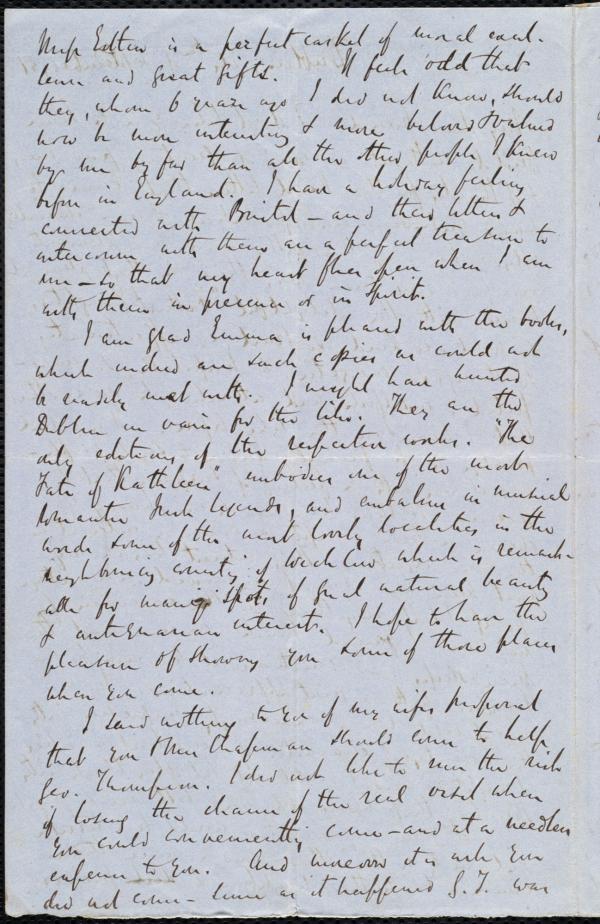 Miss Estlin is a perfect casket of moral excel-
lence and great gifts. It feels odd that
they, whom 6 years ago I did not know, should
now be more interesting & more beloved & valued
by me by far than all the other people I knew
before in England. I have a holiday feeling
connected with Bristol – and their letters &
intercourse with them are a perfect treasure to
me – so that my heart flies open when I am
with them in presence or in spirit.
I am glad Emma is pleased with the books,
which indeed are such copies as could not
be readily met with. I might have hunted
Dublin in vain for the like. They are the
only editions of the respective works. "The
Fate of Kathleen" embodies one of the most
romantic Irish legends, and embalms in musical
words some of the most lovely localities in the
neighbouring county of Wicklow which is remark-
able for many spots of great natural beauty
& antiquarian interest. I hope to have the
pleasure of showing you some of those places
when you come.
I said nothing to you of my wife's proposal
that you & Mrs Chapman should come to help
Geo. Thompson. I did not like to run the risk
of losing the chance of the real visit when
you could conveniently come – and at a needless
expense to you. And moreover it is well you
did not come – since as it happened G.T. was